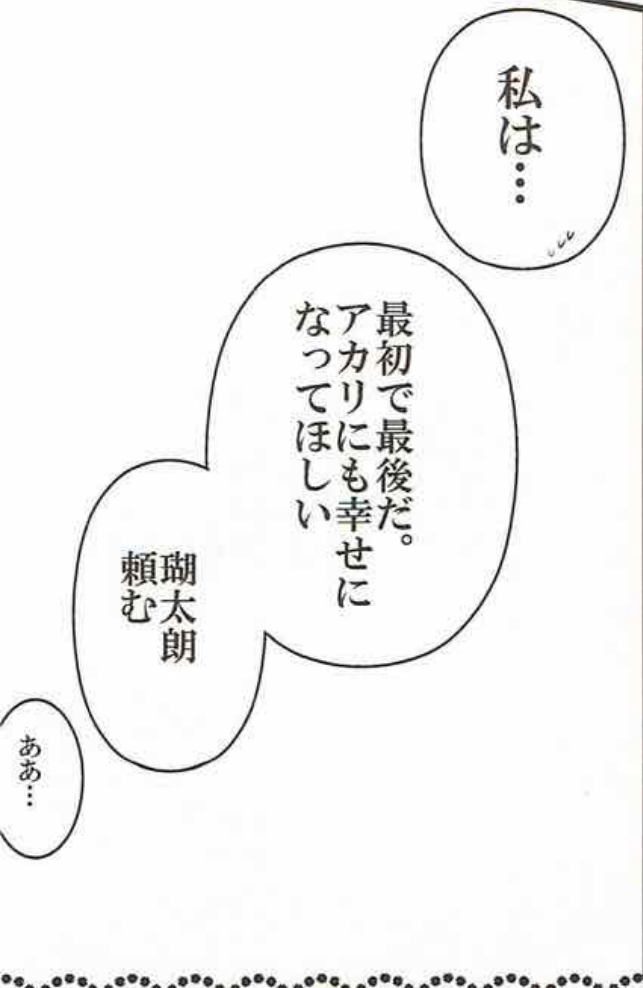 私は…
最初で最後だ。
アカリにも幸せに
なってほしい
瑚太朗
頼む
ああ…